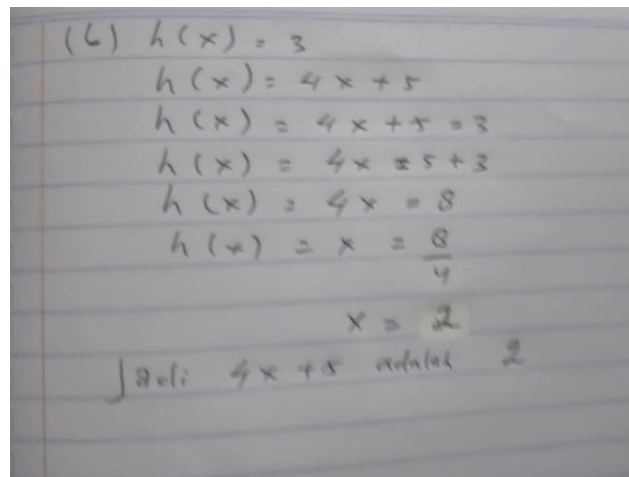 (6) h(x) = 3
h(x) = 4x + 5
h(x) = 4x + 5 = 3
h(x) = 4x = 5 + 3
h(x) = 4x = 8
h(x) = x = 8/4
x = 2
Jadi 4x + 5 adalah 2